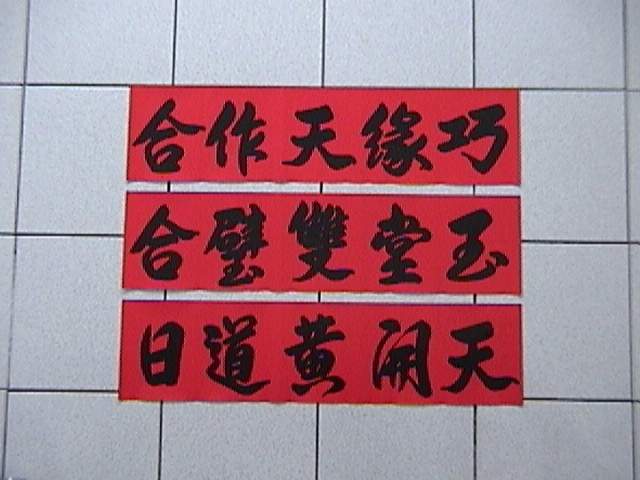 巧緣天作合
玉堂雙璧合
天開黃道日